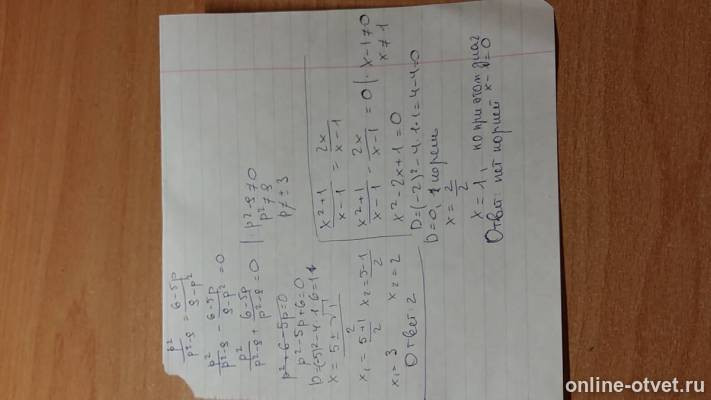 p²/(p²-9) = (6-5p)/(9-p²)
p²/(p²-9) - (6-5p)/(9-p²) = 0
p²/(p²-9) + (6-5p)/(p²-9) = 0 | p²-9≠0
p²≠9
p≠±3
p²+6-5p=0
p²-5p+6=0
x = (5±√1)/2
x₁ = (5+1)/2 x₂ = (5-1)/2
x₁=3 x₂=2
Ответ: 2
(x²+1)/(x-1) = 2x/(x-1)
(x²+1)/(x-1) - 2x/(x-1) = 0 | · x-1≠0
x≠1
x²-2x+1=0
D=(-2)²-4·1·1=4-4=0
D=0, 1 корень
x = 2/2
x=1, но при этом
Ответ: нет корней x-1=0
online-otvet.ru